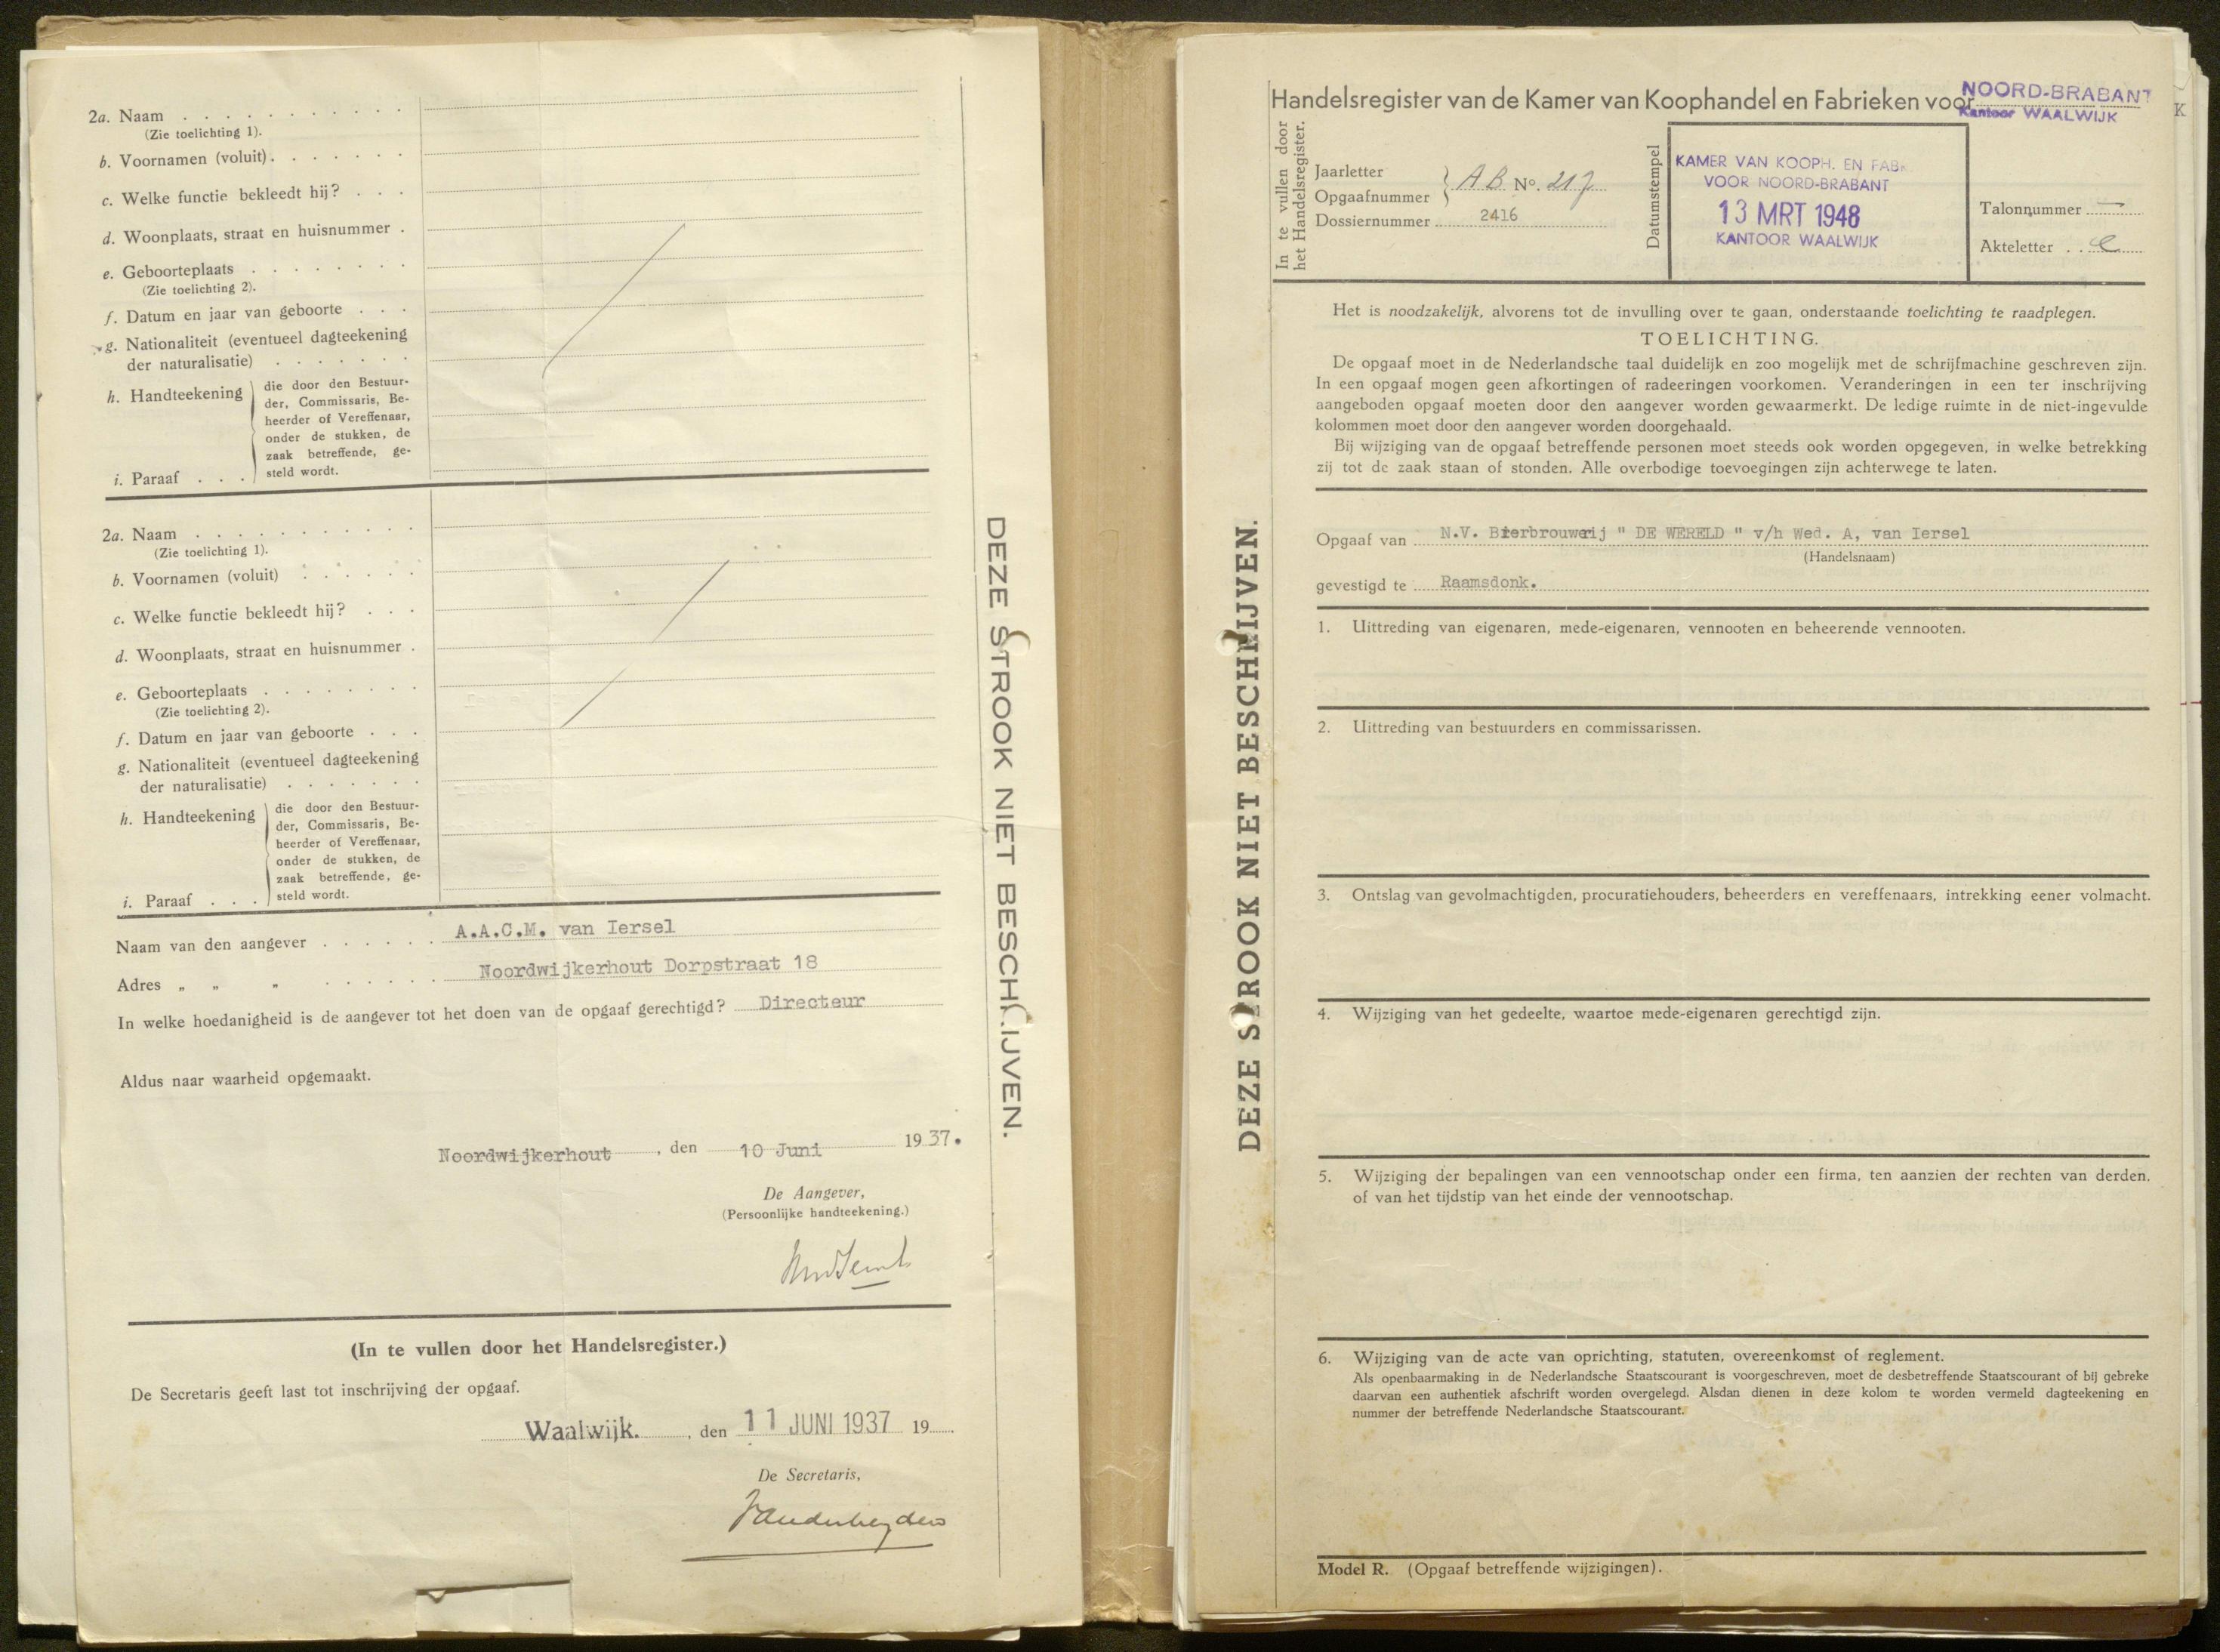 2a. Naam . . . . . . . . . . .
(Zie toelichting 1).
b. Voornamen (voluit). . . . . . .
c. Welke functie bekleedt hij? . . .
d. Woonplaats, straat en huisnummer .
e. Geboorteplaats . . . . . . . .
(Zie toelichting 2).
f. Datum en jaar van geboorte . . .
g. Nationaliteit (eventueel dagteekening
der naturalisatie) . . . . . . .
h. Handteekening
die door den Bestuur-
der, Commissaris, Be-
heerder of Vereffenaar,
onder de stukken, de
zaak betreffende, ge-
steld wordt.
i. Paraaf . . .
2a. Naam . . . . . . . . . . .
(Zie toelichting 1).
b. Voornamen (voluit) . . . . . .
c. Welke functie bekleedt hij? . . .
d. Woonplaats, straat en huisnummer .
e. Geboorteplaats . . . . . . . .
(Zie toelichting 2).
f. Datum en jaar van geboorte . . .
g. Nationaliteit (eventueel dagteekening
der naturalisatie) . . . . . . .
h. Handteekening
die door den Bestuur-
der, Commissaris, Be-
heerder of Vereffenaar,
onder de stukken, de
zaak betreffende, ge-
steld wordt.
i. Paraaf . . .
Naam van den aangever . . . . . . A.A.C.M. van Iersel
Adres „ „ „ . . . . . . Noordwijkerhout Dorpstraat 18
In welke hoedanigheid is de aangever tot het doen van de opgaaf gerechtigd? Directeur
Aldus naar waarheid opgemaakt.
Noordwijkerhout, den 10 Juni 1937.
De Aangever,
(Persoonlijke handteekening.)
(In te vullen door het Handelsregister.)
De Secretaris geeft last tot inschrijving der opgaaf.
Waalwijk., den 11 JUNI 1937 19
De Secretaris,
Vanderheyden
DEZE STROOK NIET BESCHRIJVEN.
DEZE STROOK NIET BESCHRIJVEN.
Handelsregister van de Kamer van Koophandel en Fabrieken voor NOORD-BRABANT
Kantoor WAALWIJK
K
In te vullen door
het Handelsregister.
Jaarletter
Opgaafnummer
AB No. 217
Dossiernummer 2416
Datumstempel
KAMER VAN KOOPH. EN FABr
VOOR NOORD-BRABANT
13 MRT 1948
KANTOOR WAALWIJK
Talonnummer —
Akteletter . . e
Het is noodzakelijk, alvorens tot de invulling over te gaan, onderstaande toelichting te raadplegen.
TOELICHTING.
De opgaaf moet in de Nederlandsche taal duidelijk en zoo mogelijk met de schrijfmachine geschreven zijn.
In een opgaaf mogen geen afkortingen of radeeringen voorkomen. Veranderingen in een ter inschrijving
aangeboden opgaaf moeten door den aangever worden gewaarmerkt. De ledige ruimte in de niet-ingevulde
kolommen moet door den aangever worden doorgehaald.
Bij wijziging van de opgaaf betreffende personen moet steeds ook worden opgegeven, in welke betrekking
zij tot de zaak staan of stonden. Alle overbodige toevoegingen zijn achterwege te laten.
Opgaaf van N.V. Bierbrouwerij " DE WERELD " v/h Wed. A, van Iersel
(Handelsnaam)
gevestigd te Raamsdonk.
1. Uittreding van eigenaren, mede-eigenaren, vennooten en beheerende vennooten.
2. Uittreding van bestuurders en commissarissen.
3. Ontslag van gevolmachtigden, procuratiehouders, beheerders en vereffenaars, intrekking eener volmacht.
4. Wijziging van het gedeelte, waartoe mede-eigenaren gerechtigd zijn.
5. Wijziging der bepalingen van een vennootschap onder een firma, ten aanzien der rechten van derden.
of van het tijdstip van het einde der vennootschap.
6. Wijziging van de acte van oprichting, statuten, overeenkomst of reglement.
Als openbaarmaking in de Nederlandsche Staatscourant is voorgeschreven, moet de desbetreffende Staatscourant of bij gebreke
daarvan een authentiek afschrift worden overgelegd. Alsdan dienen in deze kolom te worden vermeld dagteekening en
nummer der betreffende Nederlandsche Staatscourant.
Model R. (Opgaaf betreffende wijzigingen).